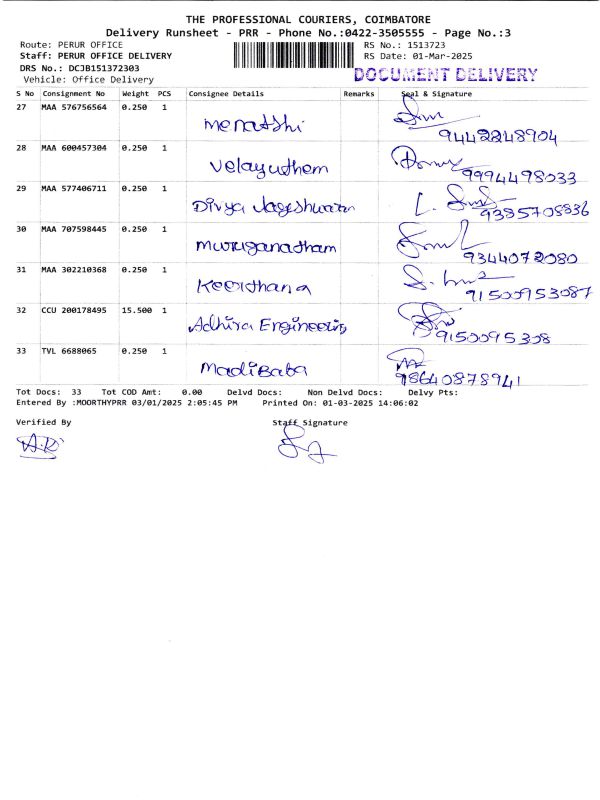 THE PROFESSIONAL COURIERS, COIMBATORE
Delivery Runsheet - PRR - Phone No.:0422-3505555 - Page No.:3
Route: PERUR OFFICE RS No.: 1513723
Staff: PERUR OFFICE DELIVERY RS Date: 01-Mar-2025
DRS No.: DCJB151372303 DOCUMENT DELIVERY
Vehicle: Office Delivery
S No Consignment No Weight PCS Consignee Details Remarks Seal & Signature
27 MAA 576756564 0.250 1 Menatshi 9442248904
28 MAA 600457304 0.250 1 Velayuthem 9994498033
29 MAA 577406711 0.250 1 Divya Jageshwaran 9385708836
30 MAA 707598445 0.250 1 Muruganatham 9344072080
31 MAA 302210368 0.250 1 Keerthana 9150095 3087
32 CCU 200178495 15.500 1 Adhira Engineering 9150095308
33 TVL 6688065 0.250 1 MadiBaba 98640878941
Tot Docs: 33 Tot COD Amt: 0.00 Delvd Docs: Non Delvd Docs: Delvy Pts:
Entered By :MOORTHYPRR 03/01/2025 2:05:45 PM Printed On: 01-03-2025 14:06:02
Verified By Staff Signature